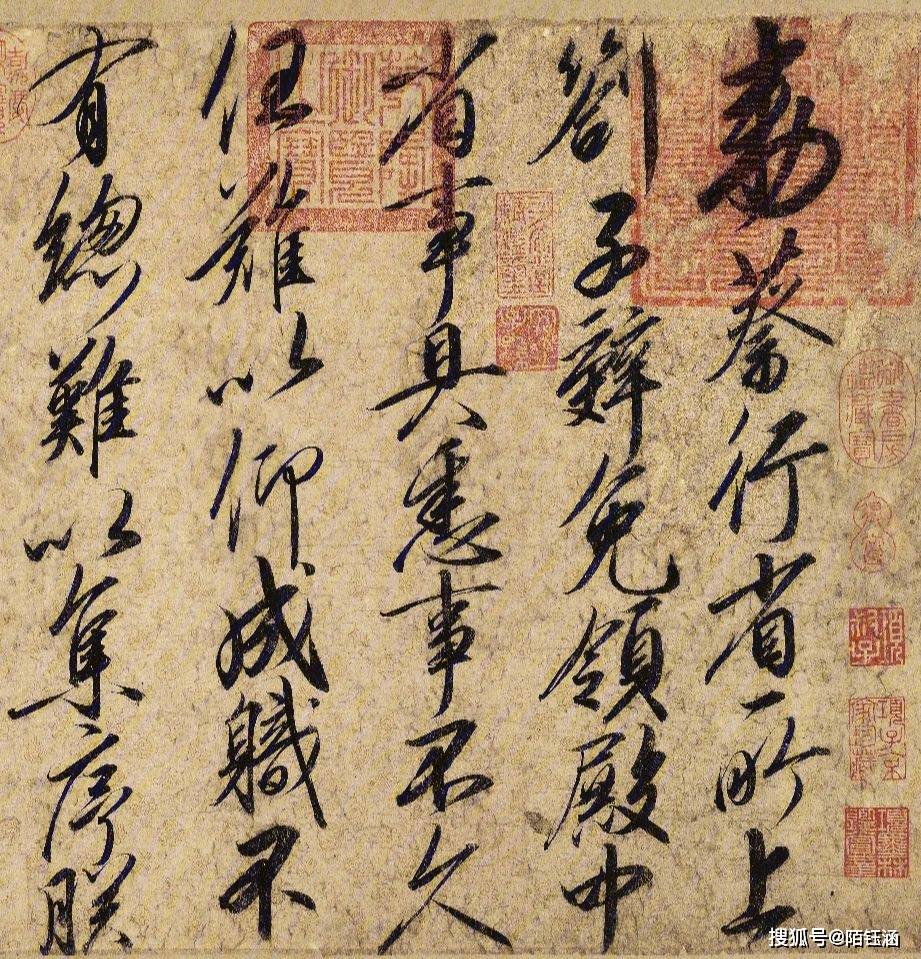 勅蔡行省所上
劄子辭免領殿中
省事具悉事不久
任難以仰成職不
有總難以集序朕
項子京家珍藏
搜狐号@陌钰涵